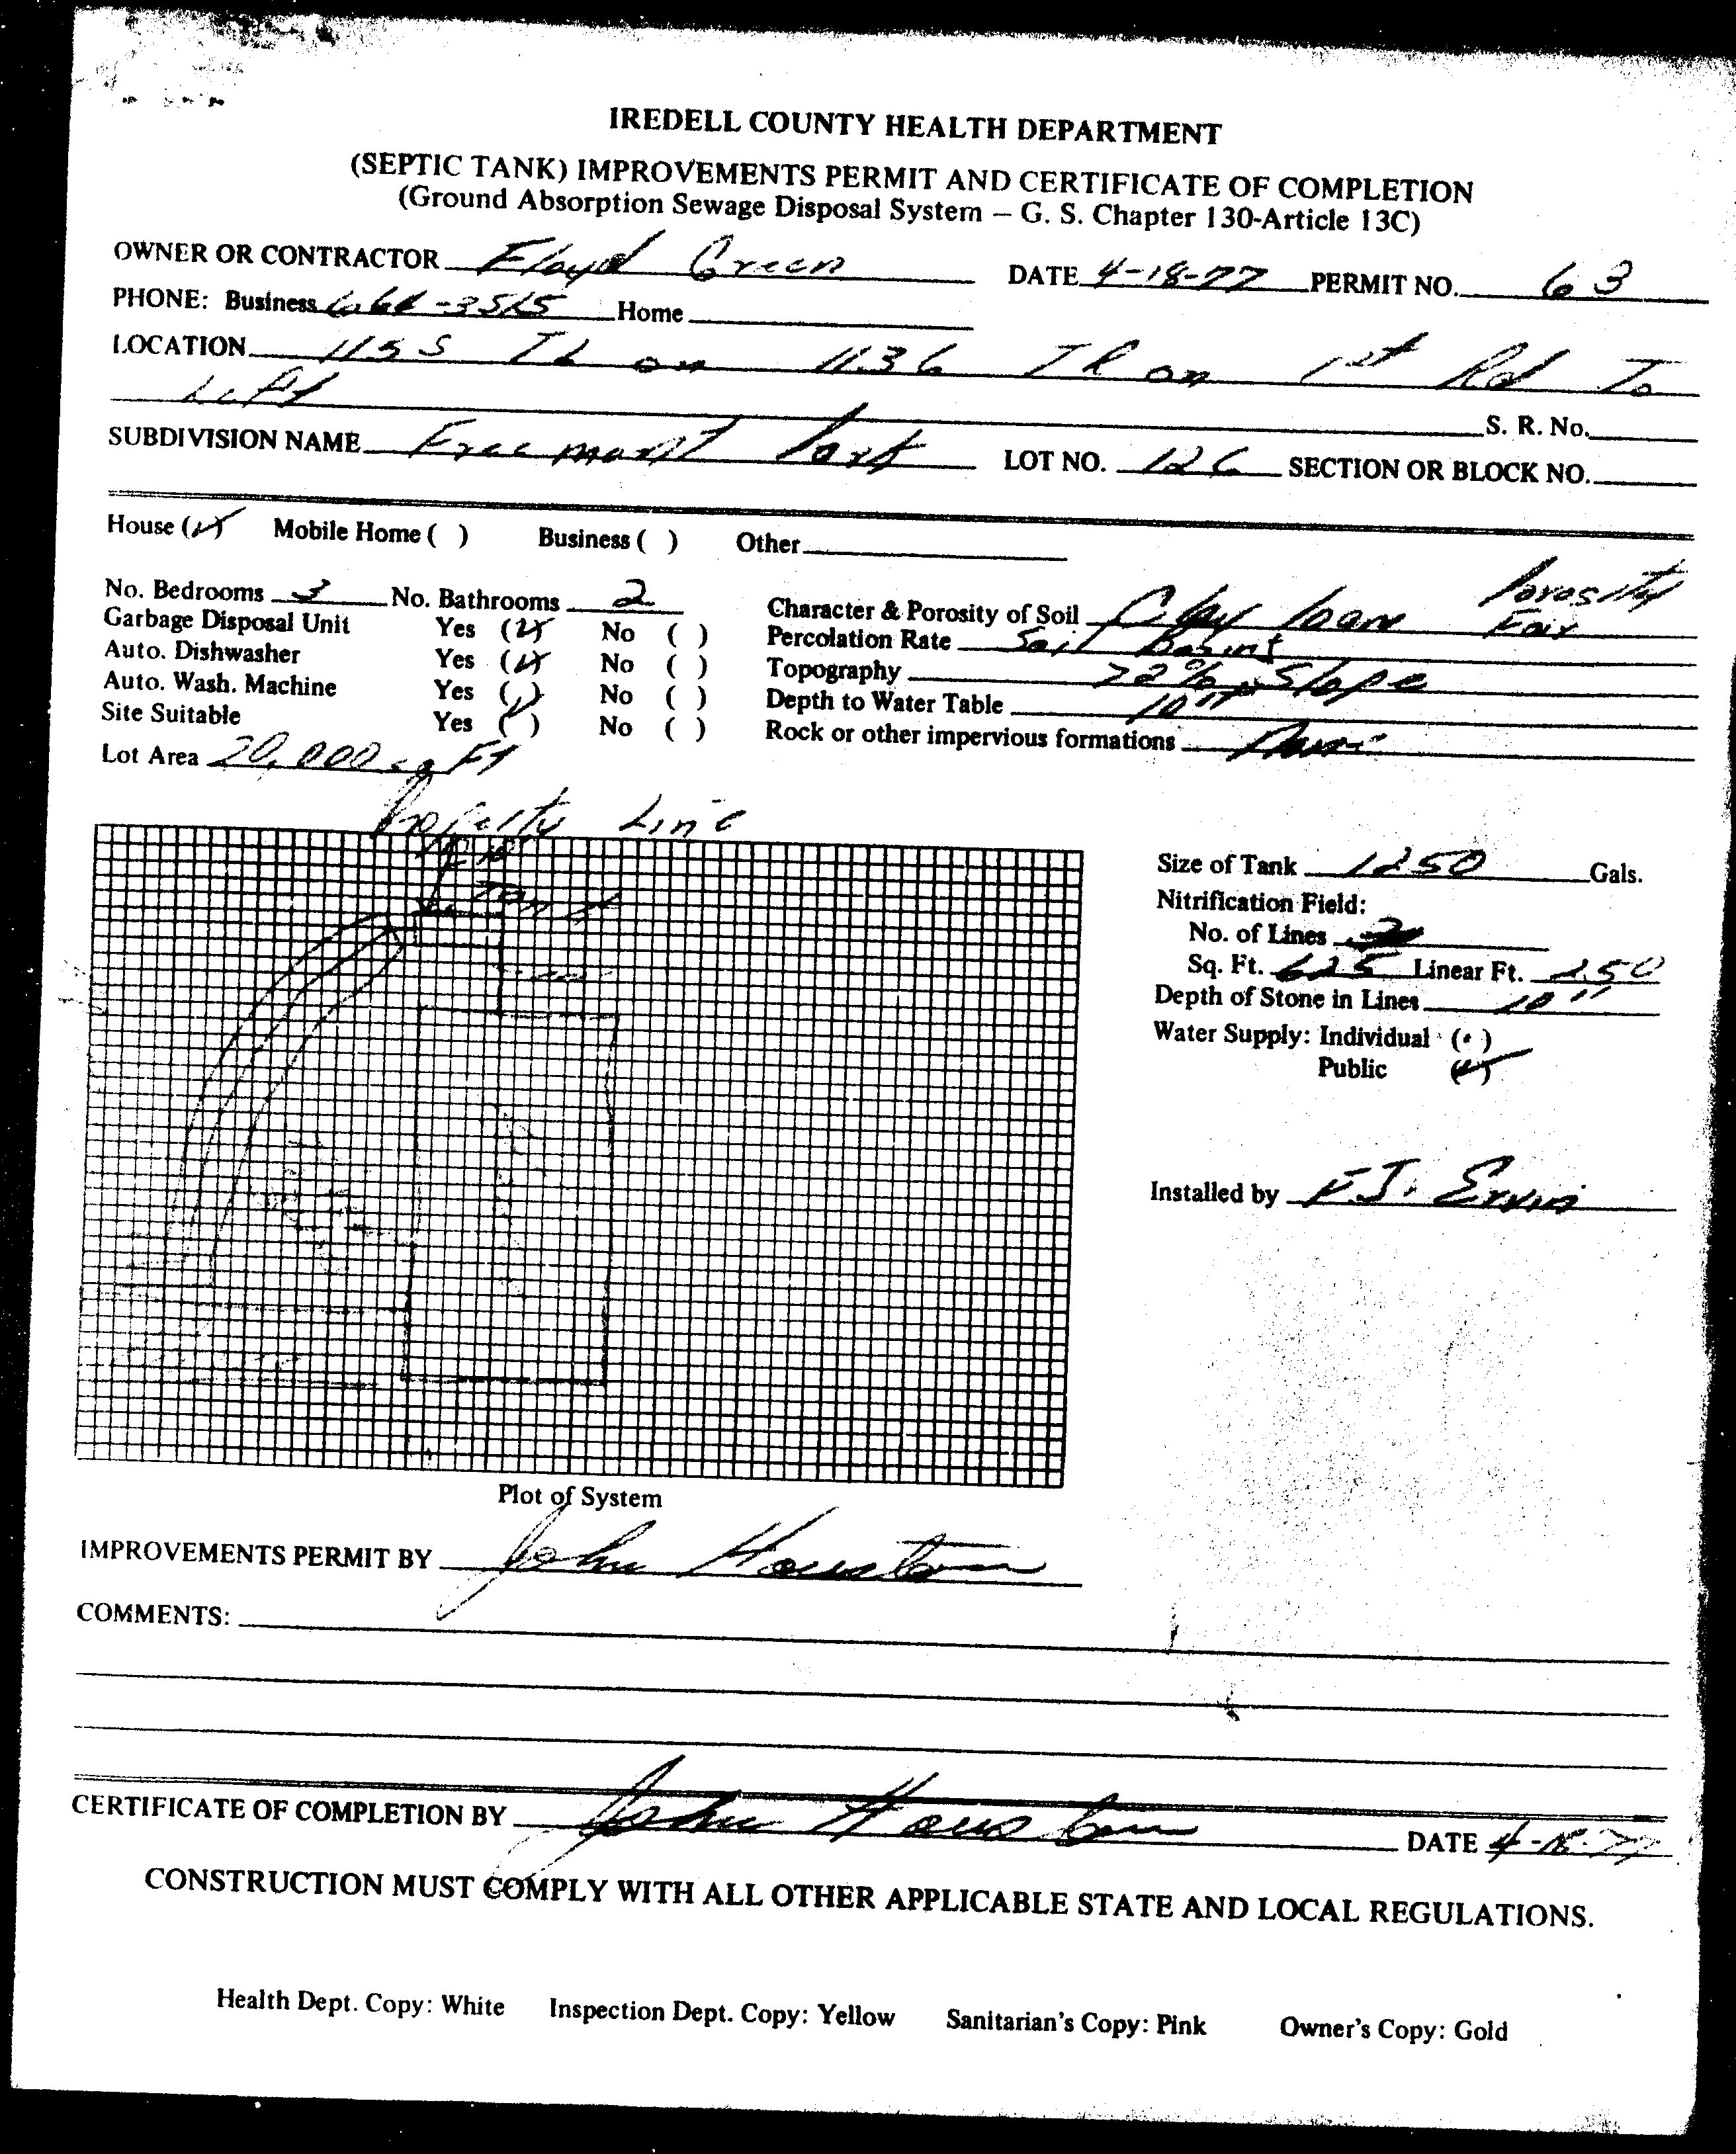 IREDELL COUNTY HEALTH DEPARTMENT
(SEPTIC TANK) IMPROVEMENTS PERMIT AND CERTIFICATE OF COMPLETION
(Ground Absorption Sewage Disposal System – G. S. Chapter 130-Article 13C)
OWNER OR CONTRACTOR Floyd Green DATE 4-18-77 PERMIT NO. 63
PHONE: Business Home
LOCATION 115 S TL on 1136 TR on 1st Rd To
Left S. R. No.
SUBDIVISION NAME Freemont Park LOT NO. 126 SECTION OR BLOCK NO.
House (✓) Mobile Home ( ) Business ( ) Other
Porosity
No. Bedrooms 3 No. Bathrooms 2 Character & Porosity of Soil Clay loam Fair
Garbage Disposal Unit Yes (✓) No ( ) Percolation Rate Soil Basins
Auto. Dishwasher Yes (✓) No ( ) Topography 22% Slope
Auto. Wash. Machine Yes (✓) No ( ) Depth to Water Table 10'+
Site Suitable Yes (✓) No ( ) Rock or other impervious formations
Lot Area 20,000 sq Ft
Property Line
10'
Tank
Size of Tank 1250 Gals.
Nitrification Field:
No. of Lines
Sq. Ft. 625 Linear Ft. 250
Depth of Stone in Lines 10"
Water Supply: Individual ( )
Public (✓)
Installed by F.J. Ervin
Plot of System
IMPROVEMENTS PERMIT BY John Houston
COMMENTS:
CERTIFICATE OF COMPLETION BY John Houston DATE 4-18-77
CONSTRUCTION MUST COMPLY WITH ALL OTHER APPLICABLE STATE AND LOCAL REGULATIONS.
Health Dept. Copy: White Inspection Dept. Copy: Yellow Sanitarian's Copy: Pink Owner's Copy: Gold